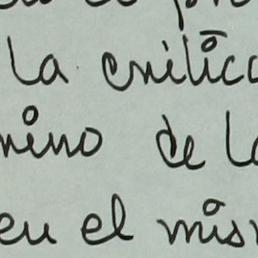 la crític
mino de l
en el mis